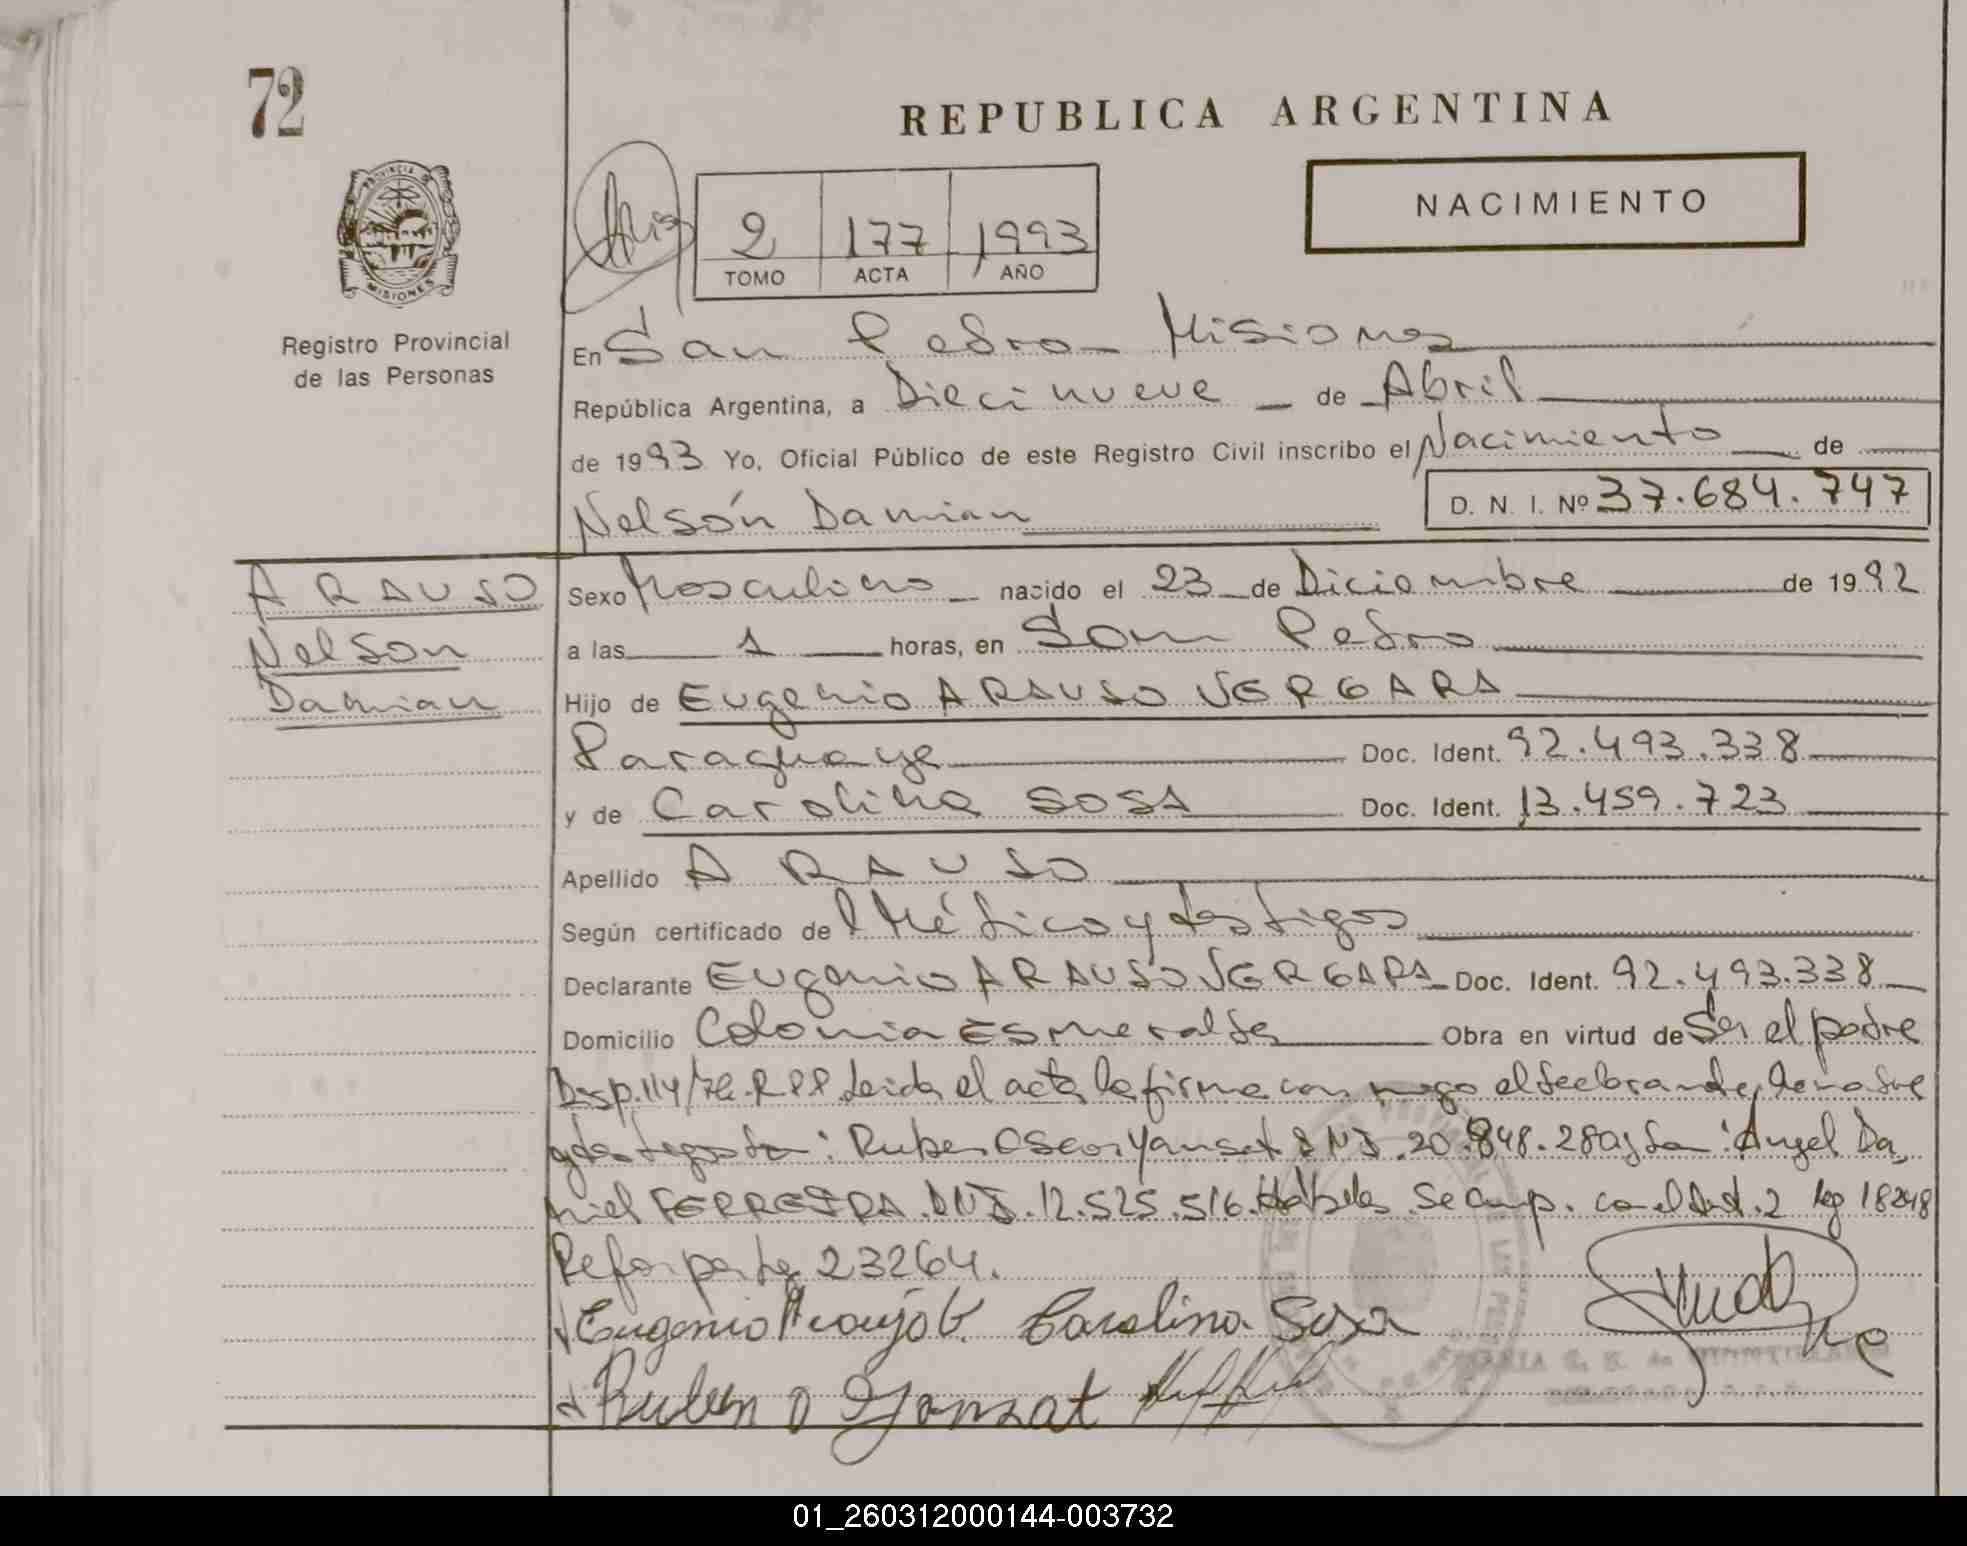 72
REPUBLICA ARGENTINA
NACIMIENTO
2 177 1993
TOMO ACTA AÑO
PROVINCIA DE
MISIONES
Registro Provincial
de las Personas
En San Pedro Misiones
República Argentina, a Diecinueve de Abril
de 1993 Yo, Oficial Público de este Registro Civil inscribo el Nacimiento de
Nelsón Damian D. N. I. Nº 37.684.747
ARAUSO
Nelson
Damian
Sexo Masculino nacido el 23 de Diciembre de 1992
a las 1 horas, en San Pedro
Hijo de Eugenio ARAUSO VERGARA
Paraguaya Doc. Ident. 92.493.338
y de Carolina SOSA Doc. Ident. 13.459.723
Apellido ARAUSO
Según certificado de Médico y testigos
Declarante Eugenio ARAUSO VERGARA Doc. Ident. 92.493.338
Domicilio Colonia Esmeralda Obra en virtud de Ser el padre
Disp. 114/ Leida el acta la firma con migo el declarante, la madre
y testigos : Ruben Oscar Yansat DNI. 20.848.280 y : Angel Da
niel FERREIRA. DNI. 12.525.516. Habiles. Se cump. con el 2 18248
Ref. 23264.
Eugenio Araujo V. Carolina Sosa
Ruben O Yanzat
01_260312000144-003732